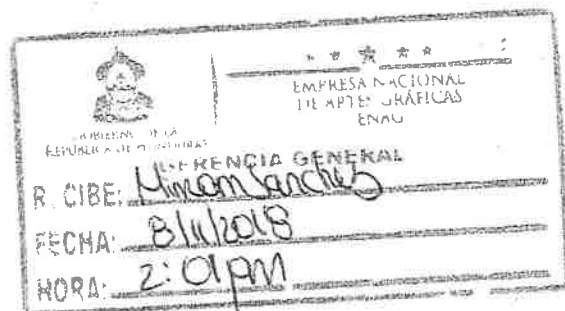 GOBIERNO DE LA
REPÚBLICA DE HONDURAS
EMPRESA NACIONAL
DE ARTES GRÁFICAS
ENAG
GERENCIA GENERAL
R CIBE: Miriam Sanchez
FECHA: 8/11/2018
HORA: 2:01pm